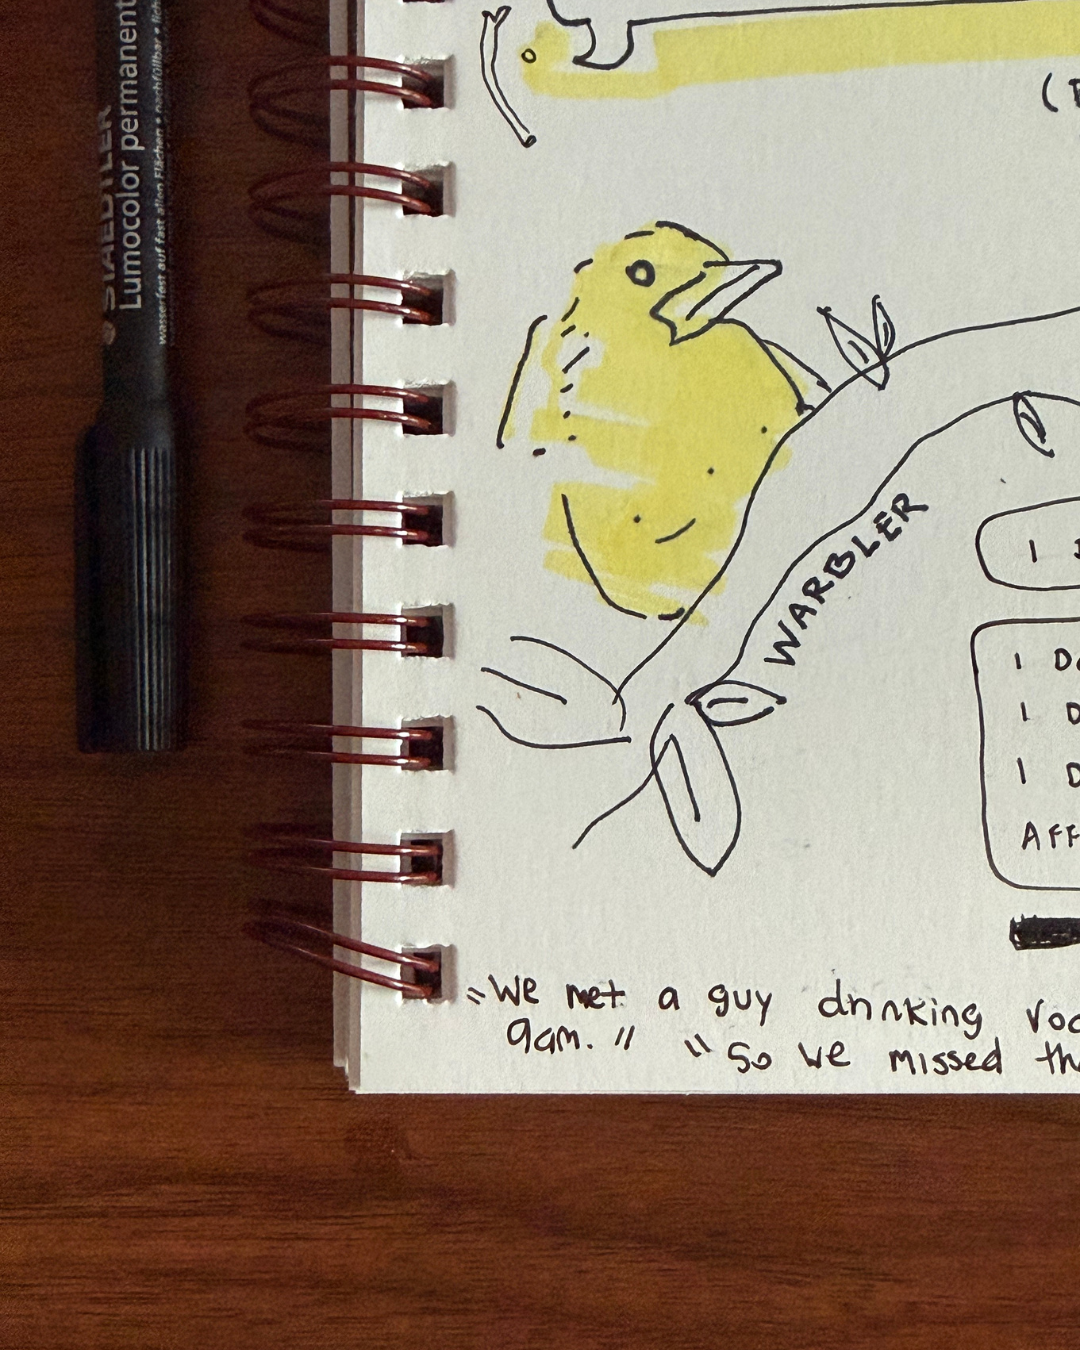 STAEDTLER
Lumocolor permanent
wasserfest auf fast allen Flächen • nachfüllbar •
(
WARBLER
1
1 Do
1 D
1 D
AFF
"We met a guy drinking
9am." "So we missed